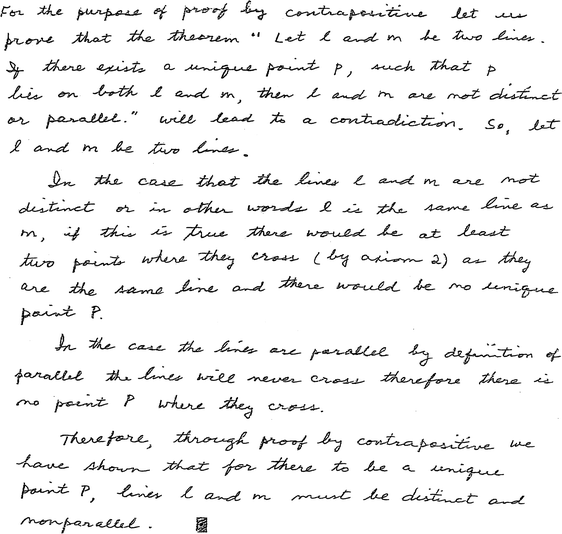 For the purpose of proof by contrapositive let us
prove that the theorem "Let l and m be two lines.
If there exists a unique point P, such that P
lies on both l and m, then l and m are not distinct
or parallel." will lead to a contradiction. So, let
l and m be two lines.
In the case that the lines l and m are not
distinct or in other words l is the same line as
m, if this is true there would be at least
two points where they cross (by axiom 2) as they
are the same line and there would be no unique
point P.
In the case the lines are parallel by definition of
parallel the lines will never cross therefore there is
no point P where they cross.
Therefore, through proof by contrapositive we
have shown that for there to be a unique
point P, lines l and m must be distinct and
nonparallel.